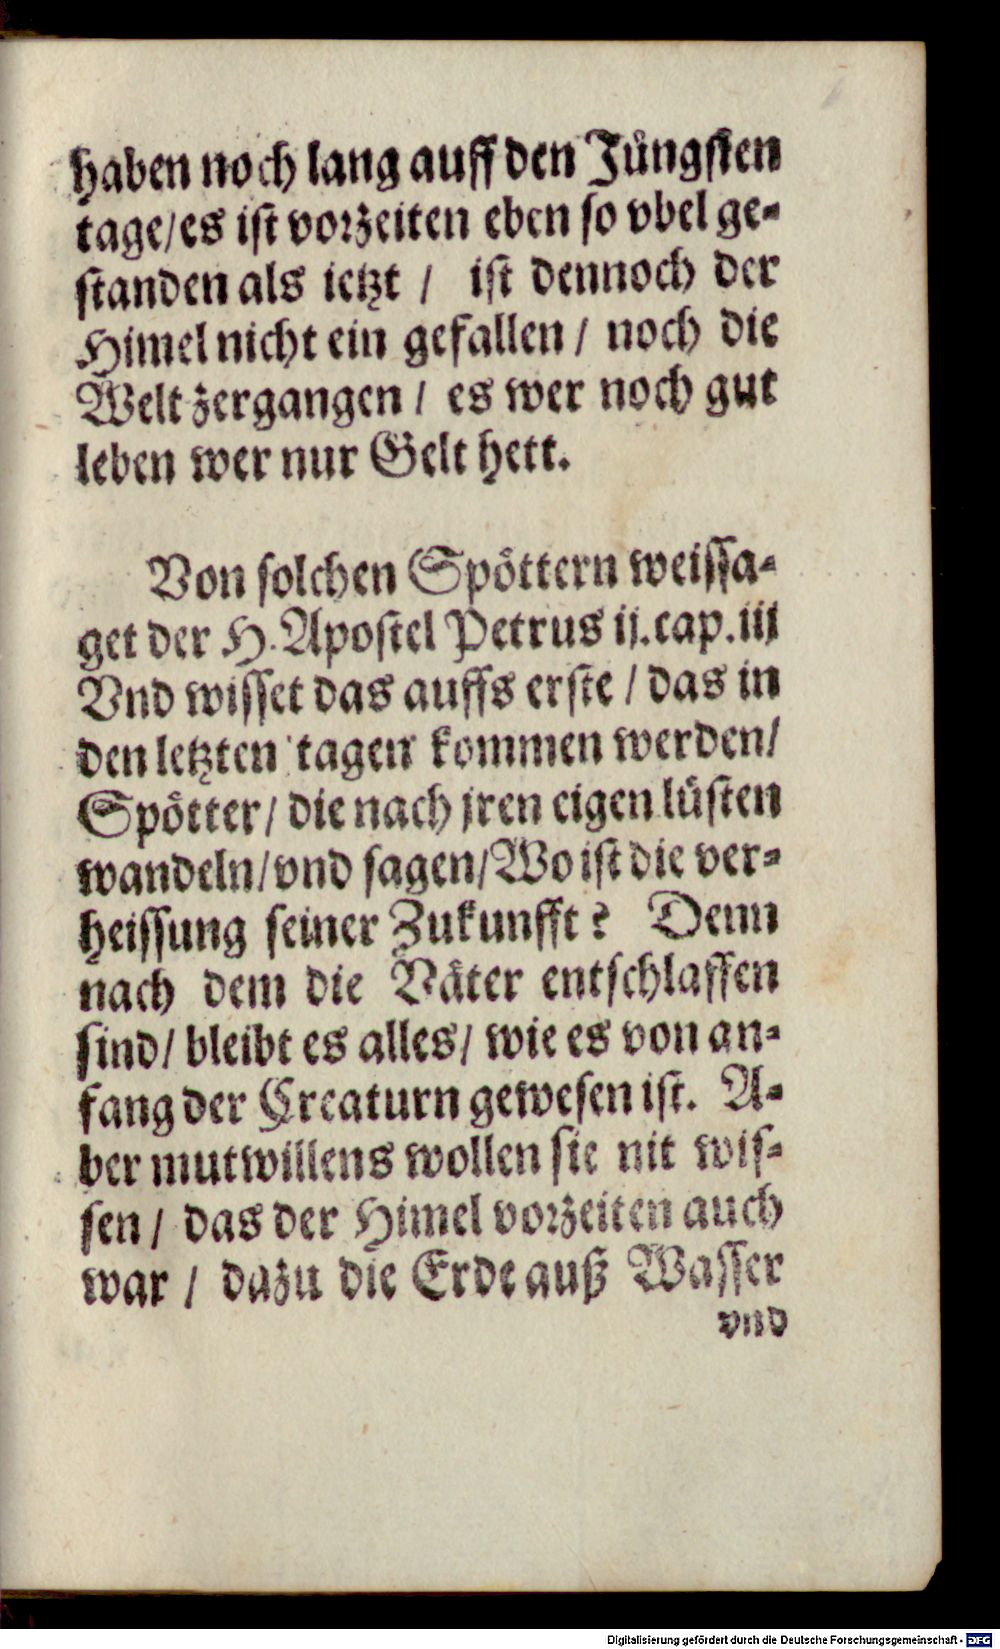 haben noch lang auff den Jüngsten
tage/es ist vorzeiten eben so vbel ge-
standen als ietzt / ist dennoch der
Himel nicht ein gefallen / noch die
Welt zergangen / es wer noch gut
leben wer nur Gelt hett.
Von solchen Spöttern weissa-
get der H. Apostel Petrus ij. cap. iij
Vnd wisset das auffs erste / das in
den letzten tagen kommen werden/
Spötter/ die nach jren eigen lüsten
wandeln/vnd sagen/Wo ist die ver-
heissung seiner Zukunfft? Denn
nach dem die Väter entschlaffen
sind/ bleibt es alles/ wie es von an-
fang der Creaturn gewesen ist. A-
ber mutwillens wollen sie nit wis-
sen / das der Himel vorzeiten auch
war / dazu die Erde auß Wasser
vnd
Digitalisierung gefördert durch die Deutsche Forschungsgemeinschaft - DFG